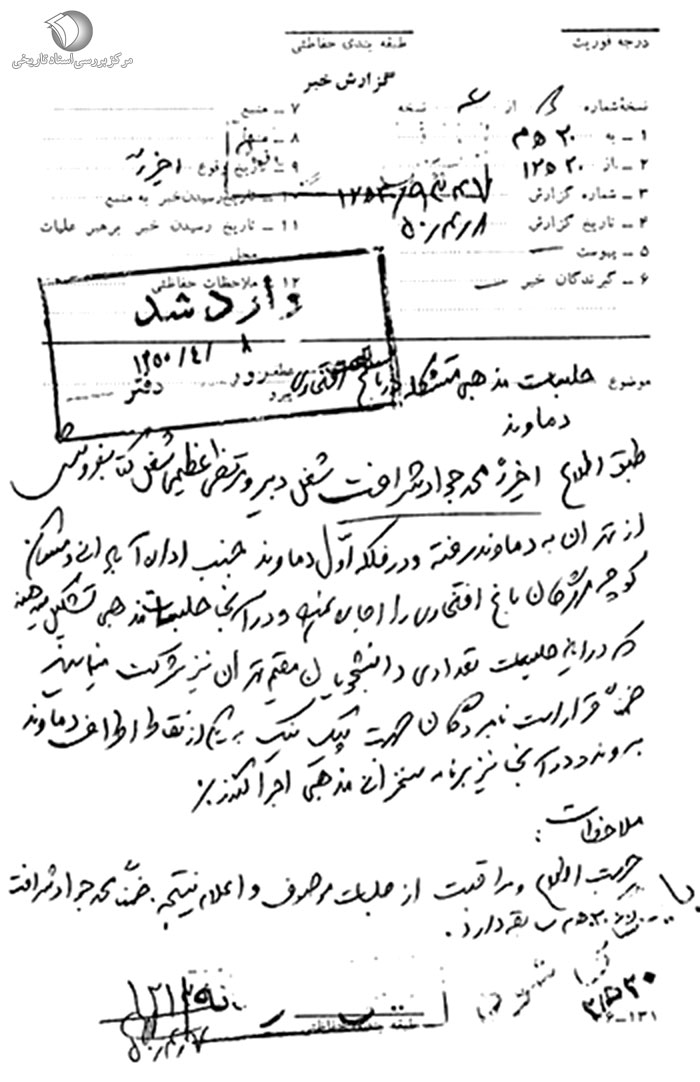 مرکز بررسی اسناد تاریخی
درجه فوریت
طبقه بندی حفاظتی
گزارش خبر
نسخهٔ شماره از نسخه
۱ ـ به ۲۰ ه‍ ۳
۲ ـ از ۲۰ ه‍ ۱۲
۳ ـ شماره گزارش
۴ ـ تاریخ گزارش ۵۰/۴/۸
۵ ـ پیوست ـ
۶ ـ گیرندگان خبر ـ
۷ ـ منبع
۸ ـ منشأ
۹ ـ تاریخ وقوع اخیراً
۱۰ ـ تاریخ رسیدن خبر به منبع
۱۱ ـ تاریخ رسیدن خبر برهبر عملیات
محل
۱۲ ـ ملاحظات حفاظتی
وارد شد
۱۳۵۰/۴/۸
دفتر
موضوع جلسات مذهبی متشکله در باغ افتخاری
دماوند
طبق اطلاع اخیراً محمد جواد شرافت شغل دبیر و مرتضی عظیمی شغل کتابفروش
از تهران به دماوند رفته و در فلکه اول دماوند جنب اداره آبیاری
کوچه باغ افتخاری را اجاره نموده و در آنجا جلسات مذهبی تشکیل میدهند
که در این جلسات تعدادی دانشجویان مقیم تهران نیز شرکت مینمایند
ضمناً قرار است نامبردگان جهت پیک نیک به یکی از نقاط اطراف دماوند
بروند و در آنجا نیز برنامه سخنرانی مذهبی اجرا گردد
ملاحظات:
جهت اطلاع و مراقبت از جلسات موصوف و اعلام نتیجه. ضمناً محمد جواد شرافت
سابقه دارد.
طبقه بندی حفاظتی
۶ــ۱۳۱
۵۰/۴/۷